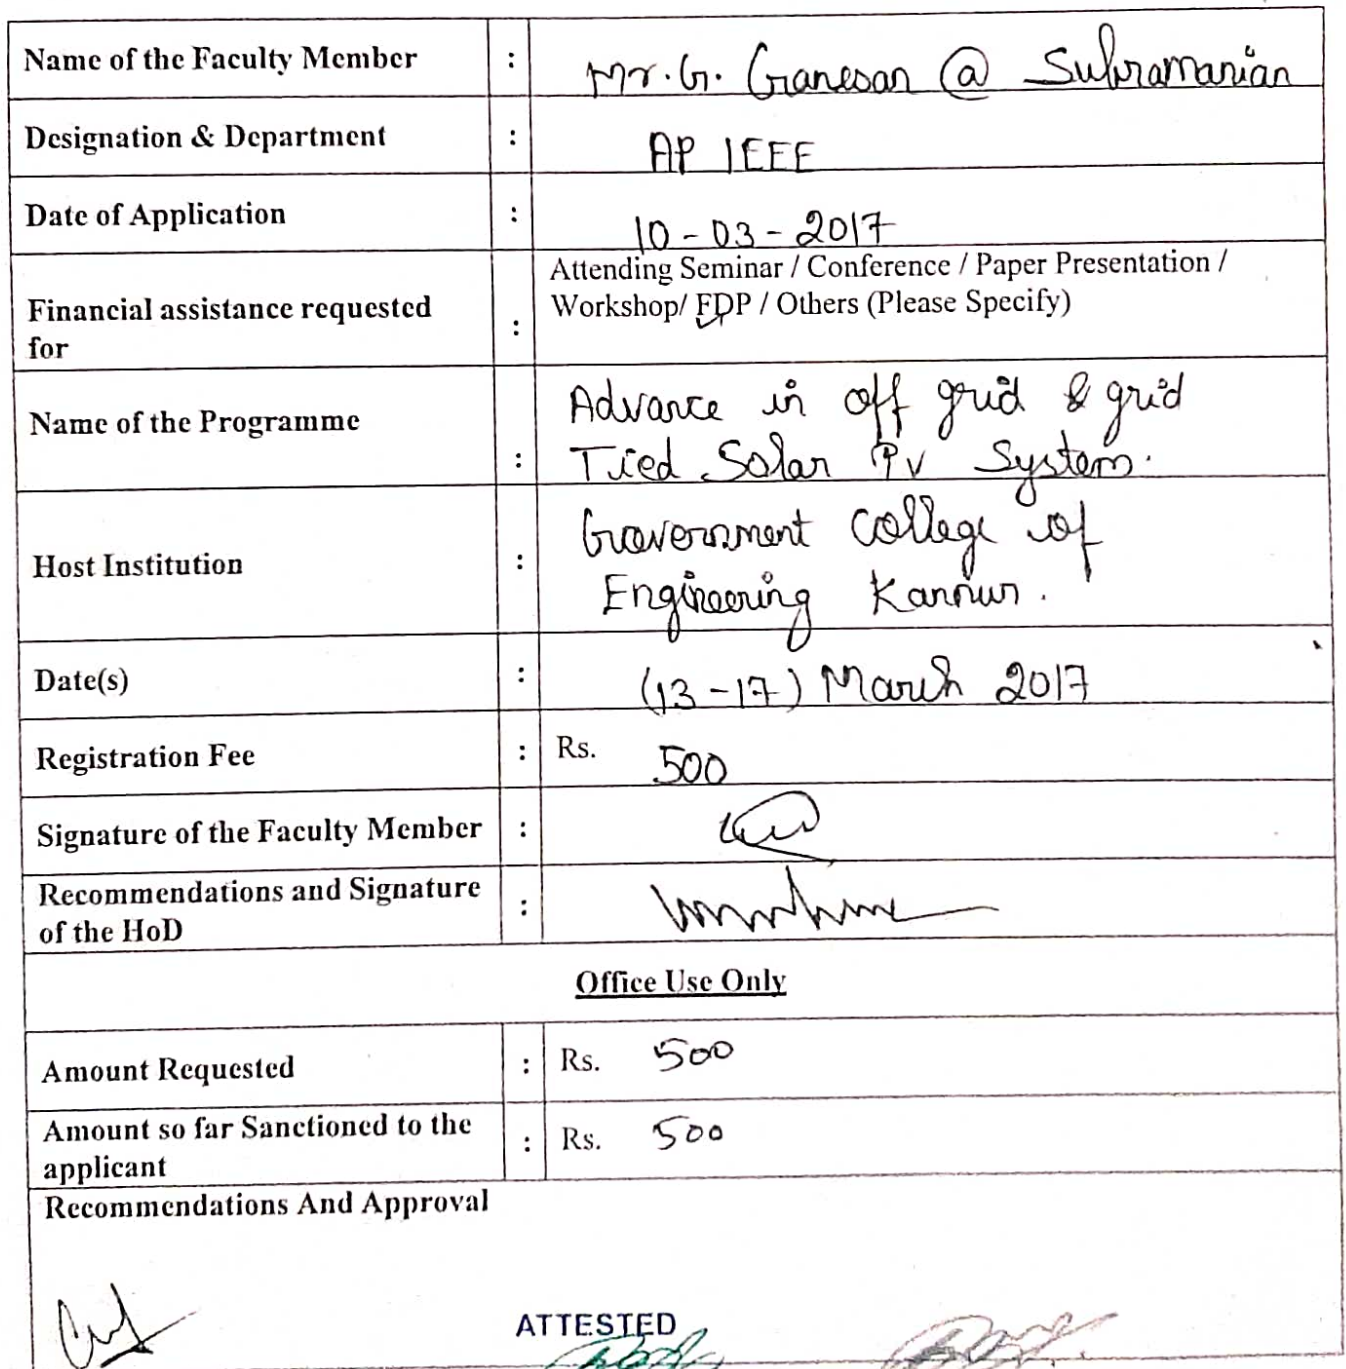 Name of the Faculty Member : Mr. G. Ganesan @ Subramanian
Designation & Department : AP / EEE
Date of Application : 10-03-2017
Attending Seminar / Conference / Paper Presentation /
Financial assistance requested : Workshop/ FDP / Others (Please Specify)
for
Name of the Programme : Advance in off grid & grid
Tied Solar PV System.
Host Institution : Government College of
Engineering Kannur.
Date(s) : (13-17) March 2017
Registration Fee : Rs. 500
Signature of the Faculty Member :
Recommendations and Signature :
of the HoD
Office Use Only
Amount Requested : Rs. 500
Amount so far Sanctioned to the : Rs. 500
applicant
Recommendations And Approval
ATTESTED